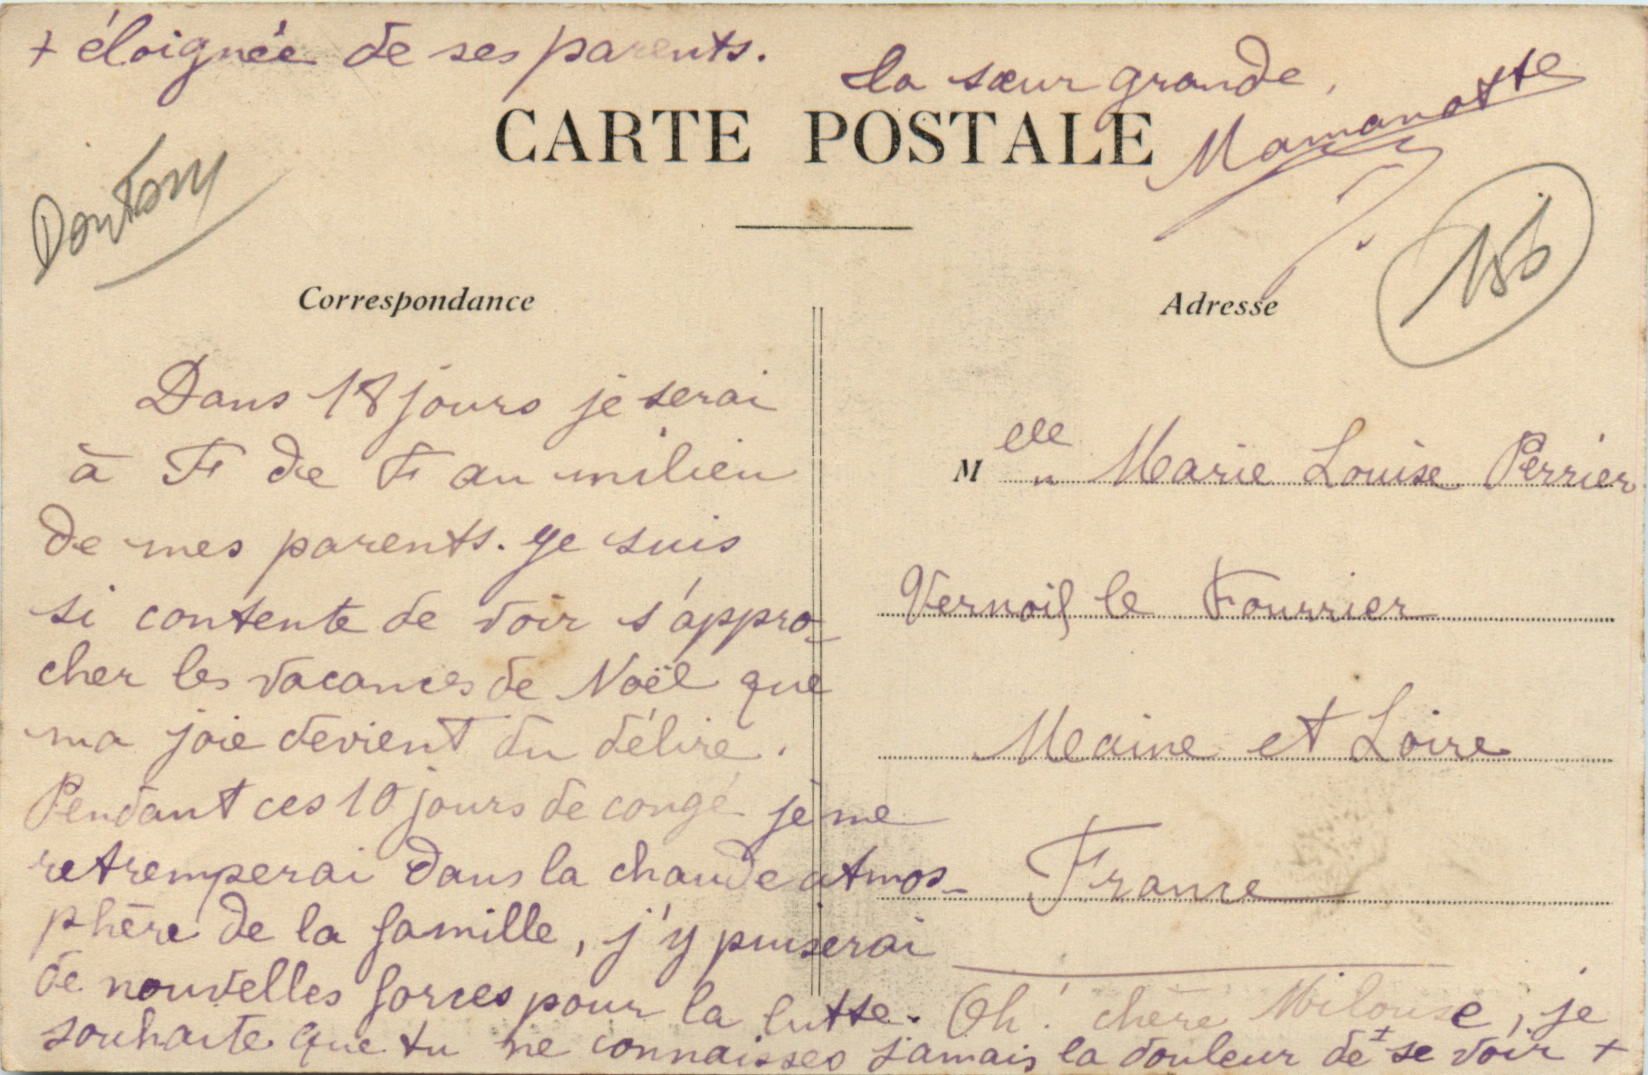 + éloignée de ses parents.
La sœur grande,
Mamanotte
CARTE POSTALE
Correspondance
Adresse
Dans 18 jours je serai
à F de F au milieu
de mes parents. Je suis
si contente de voir s'appro-
cher les vacances de Noël que
ma joie devient du délire.
Pendant ces 10 jours de congé je me
retremperai dans la chaude atmos-
phère de la famille, j'y puiserai
de nouvelles forces pour la lutte. Oh! chère Milouse, je
souhaite que tu ne connaisses jamais la douleur de se voir +
M elle Marie Louise Perrier
Vernoil le Fourrier
Maine et Loire
France